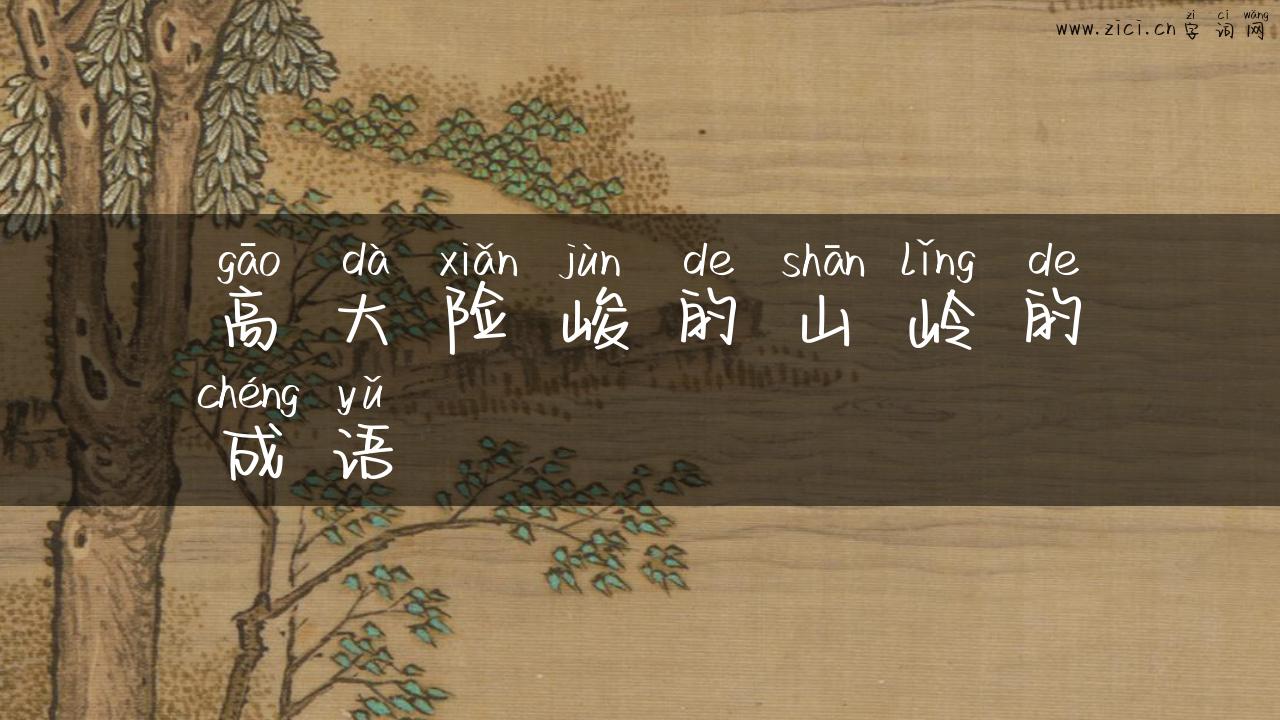 zì cí wǎng
www.zici.cn 字词网
gāo dà xiǎn jùn de shān lǐng de
高大险峻的山岭的
chéng yǔ
成语